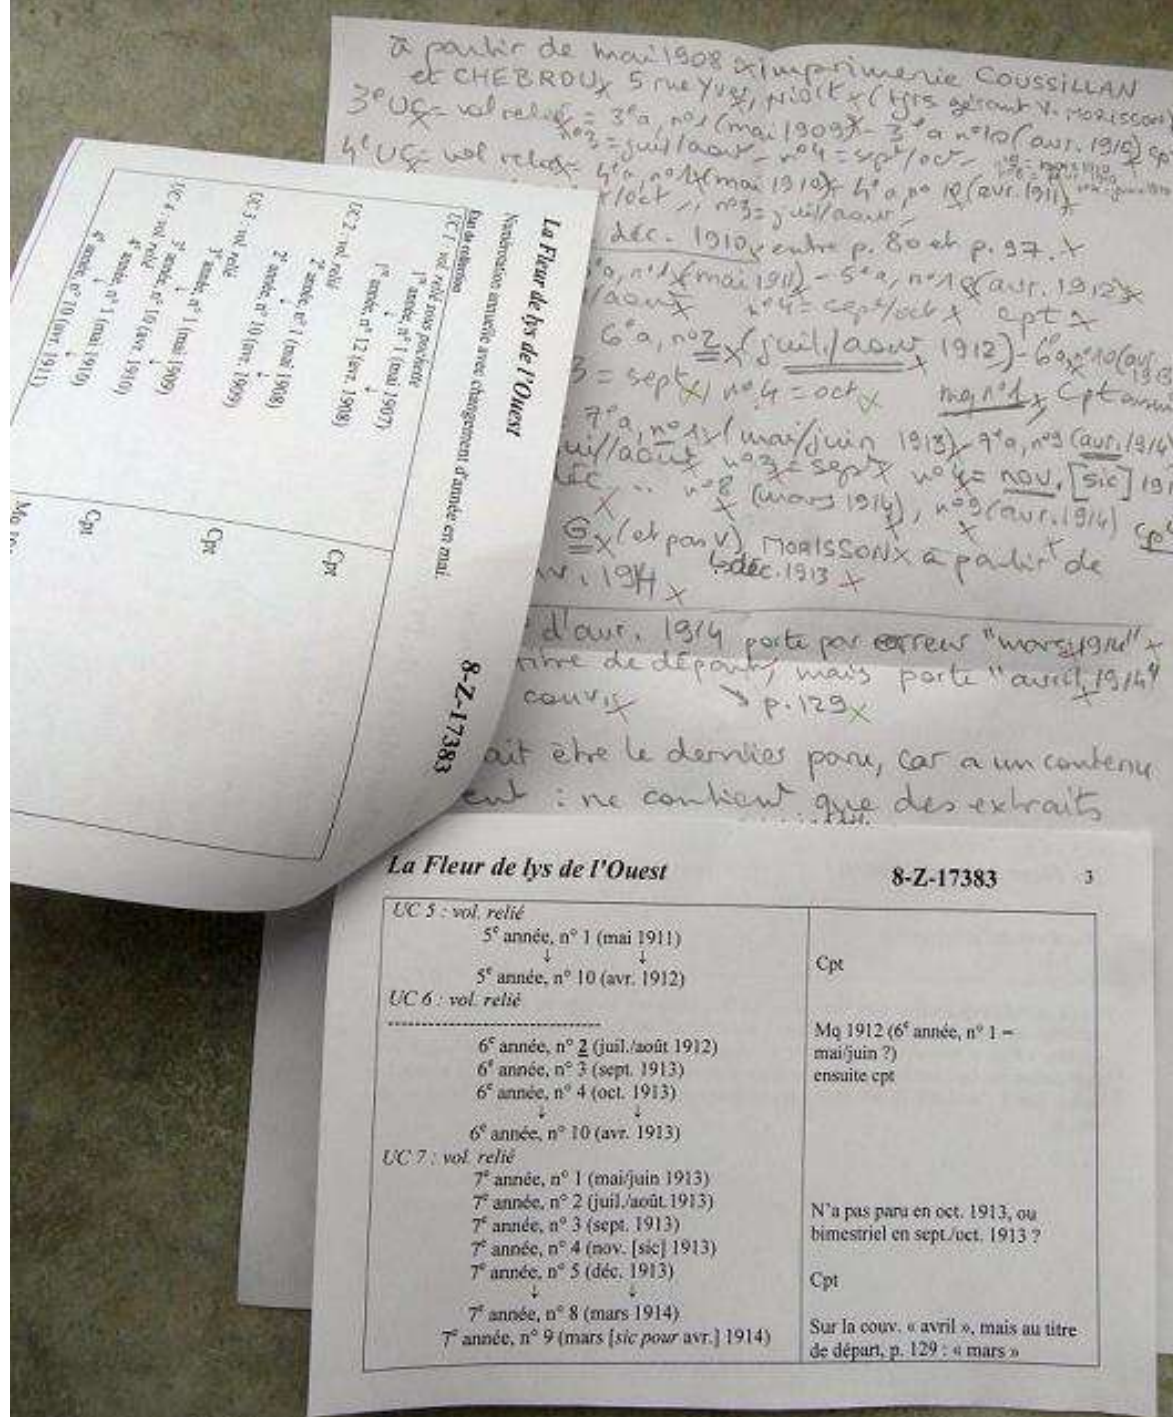 à partir de mai 1908 x imprimerie COUSSILLAN
et CHEBROUX 5 rue Yver, NIORT x (tjrs gérant V. MORISSON)
3e UC = vol relié = 3e a, n°1 (mai 1909) - 3e a n°10 (avr. 1910) cpt
n°3 = juil/août - n°4 = sept/oct
4e UC = vol relié = 4e a, n°1 (mai 1910) - 4e a, n° 10 (avr. 1911)
/oct, n°3 = juil/août
déc. 1910, entre p. 80 et p. 97. x
a, n°1 (mai 1911) - 5e a, n°10 (avr. 1912) x
/août n°4 = sept/oct x cpt x
6e a, n°2 x (juil./août 1912) - 6e a, n°10 (avr.
3 = sept x, n°4 = oct x mq n°1 x Cpt
= 7e a, n°1 (mai/juin 1913) - 7e a, n°9 (avr. 1914
uil/août n°3 = sept x n°4 = nov. [sic] 191
n°8 (mars 1914), n°9 (avr. 1914) cpt
G x (et pas V) MORISSON x à partir de
déc. 1913 x
1914 x
d'avr. 1914 porte par erreur "mars 1914" x
titre de départ, mais porte "avril 1914"
couv. x p. 129 x
ait être le dernier paru, car a un contenu
ent : ne contient que des extraits
La Fleur de lys de l'Ouest 8-Z-17383
Numérotation annuelle avec changement d'année en mai.
Etat de collection
UC 1 : vol. relié sous pochette
1re année, n° 1 (mai 1907)
↓ ↓
1re année, n° 12 (avr. 1908)
Cpt
UC 2 : vol. relié
2e année, n° 1 (mai 1908)
↓ ↓
2e année, n° 10 (avr. 1909)
Cpt
UC 3 : vol. relié
3e année, n° 1 (mai 1909)
↓ ↓
3e année, n° 10 (avr. 1910)
Cpt
UC 4 : vol. relié
4e année, n° 1 (mai 1910)
↓ ↓
4e année, n° 10 (avr. 1911)
La Fleur de lys de l'Ouest 8-Z-17383 3
UC 5 : vol. relié
5e année, n° 1 (mai 1911)
↓ ↓
Cpt
5e année, n° 10 (avr. 1912)
UC 6 : vol. relié
------------------------------
Mq 1912 (6e année, n° 1 =
mai/juin ?)
ensuite cpt
6e année, n° 2 (juil./août 1912)
6e année, n° 3 (sept. 1913)
6e année, n° 4 (oct. 1913)
↓ ↓
6e année, n° 10 (avr. 1913)
UC 7 : vol. relié
7e année, n° 1 (mai/juin 1913)
7e année, n° 2 (juil./août.1913)
7e année, n° 3 (sept. 1913)
7e année, n° 4 (nov. [sic] 1913)
N'a pas paru en oct. 1913, ou
bimestriel en sept./oct. 1913 ?
7e année, n° 5 (déc. 1913)
↓ ↓
Cpt
7e année, n° 8 (mars 1914)
7e année, n° 9 (mars [sic pour avr.] 1914)
Sur la couv. « avril », mais au titre
de départ, p. 129 : « mars »